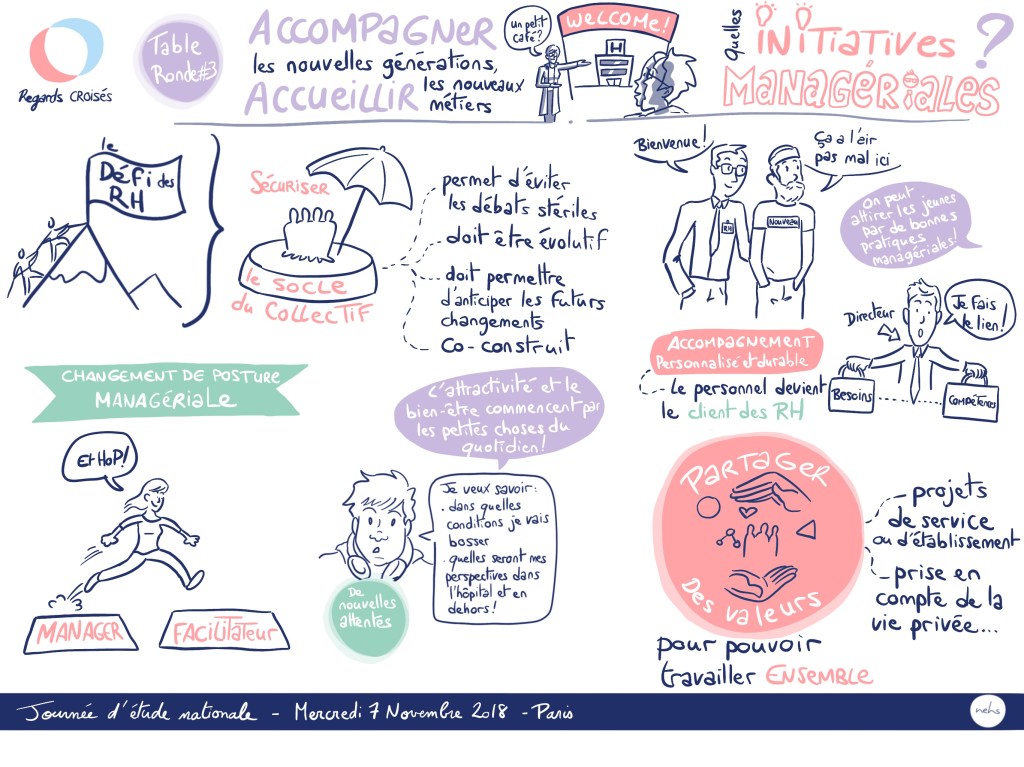 Regards CROISÉS
Table
Ronde#3
ACCOMPAGNER
les nouvelles générations,
ACCUEILLIR les nouveaux
métiers
un petit
café?
WELCOME!
H
Quelles
INITIATIVES
MANAGÉRIALES ?
le
Défi des
RH
SÉCURISER
le SOCLE
du COLLECTIF
permet d'éviter
les débats stériles
doit être évolutif
doit permettre
d'anticiper les futurs
changements
co-construit
Bienvenue!
ça a l'air
pas mal ici
RH
Nouveau
On peut
attirer les jeunes
par de bonnes
pratiques
managériales!
ACCOMPAGNEMENT
Personnalisé et durable
Le personnel devient
le client des RH
Directeur
Je fais
le lien!
Besoins
Compétences
CHANGEMENT DE POSTURE
MANAGÉRIALE
Et HOP!
MANAGER
FACILITATEUR
L'attractivité et le
bien-être commencent par
les petites choses du
quotidien!
Je veux savoir:
. dans quelles
conditions je vais
bosser
. quelles seront mes
perspectives dans
l'hôpital et en
dehors!
De
nouvelles
attentes
PARTAGER
Des valeurs
projets
de service
ou d'établissement
prise en
compte de la
vie privée...
pour pouvoir
travailler ENSEMBLE
Journée d'étude nationale - Mercredi 7 Novembre 2018 - Paris
nehs